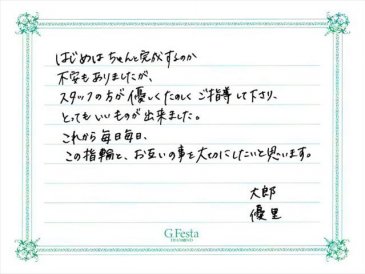 はじめは ちゃんと完成するのか
不安もありましたが、
スタッフの方が優しくたのしくご指導して下さり、
とってもいいものが出来ました。
これから毎日毎日、
この指輪と、お互いの事を大切にしたいと思います。
太郎
優里
G.Festa